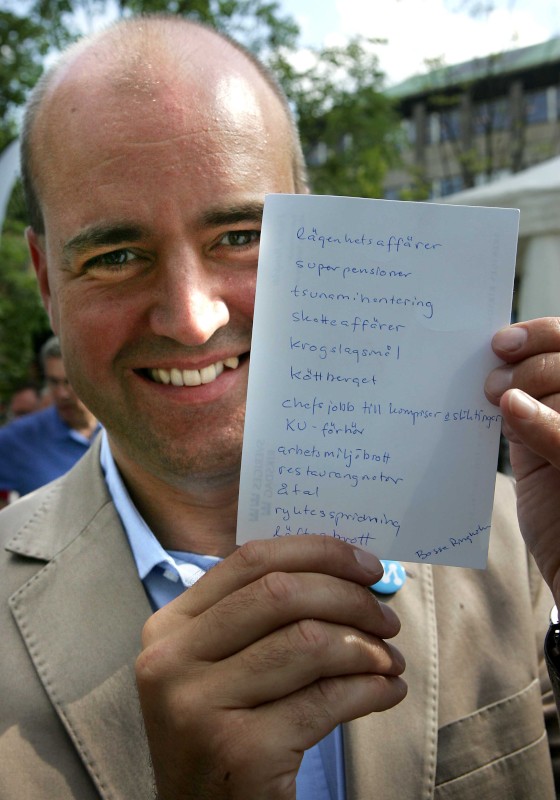 lägenhetsaffärer
superpensioner
tsunamihantering
skatteaffärer
krogslagsmål
köttberget
chefsjobb till kompisar & släktingar
KU-förhör
arbetsmiljöbrott
restaurangnotor
åtal
ryktesspridning
Bosse Ringholm